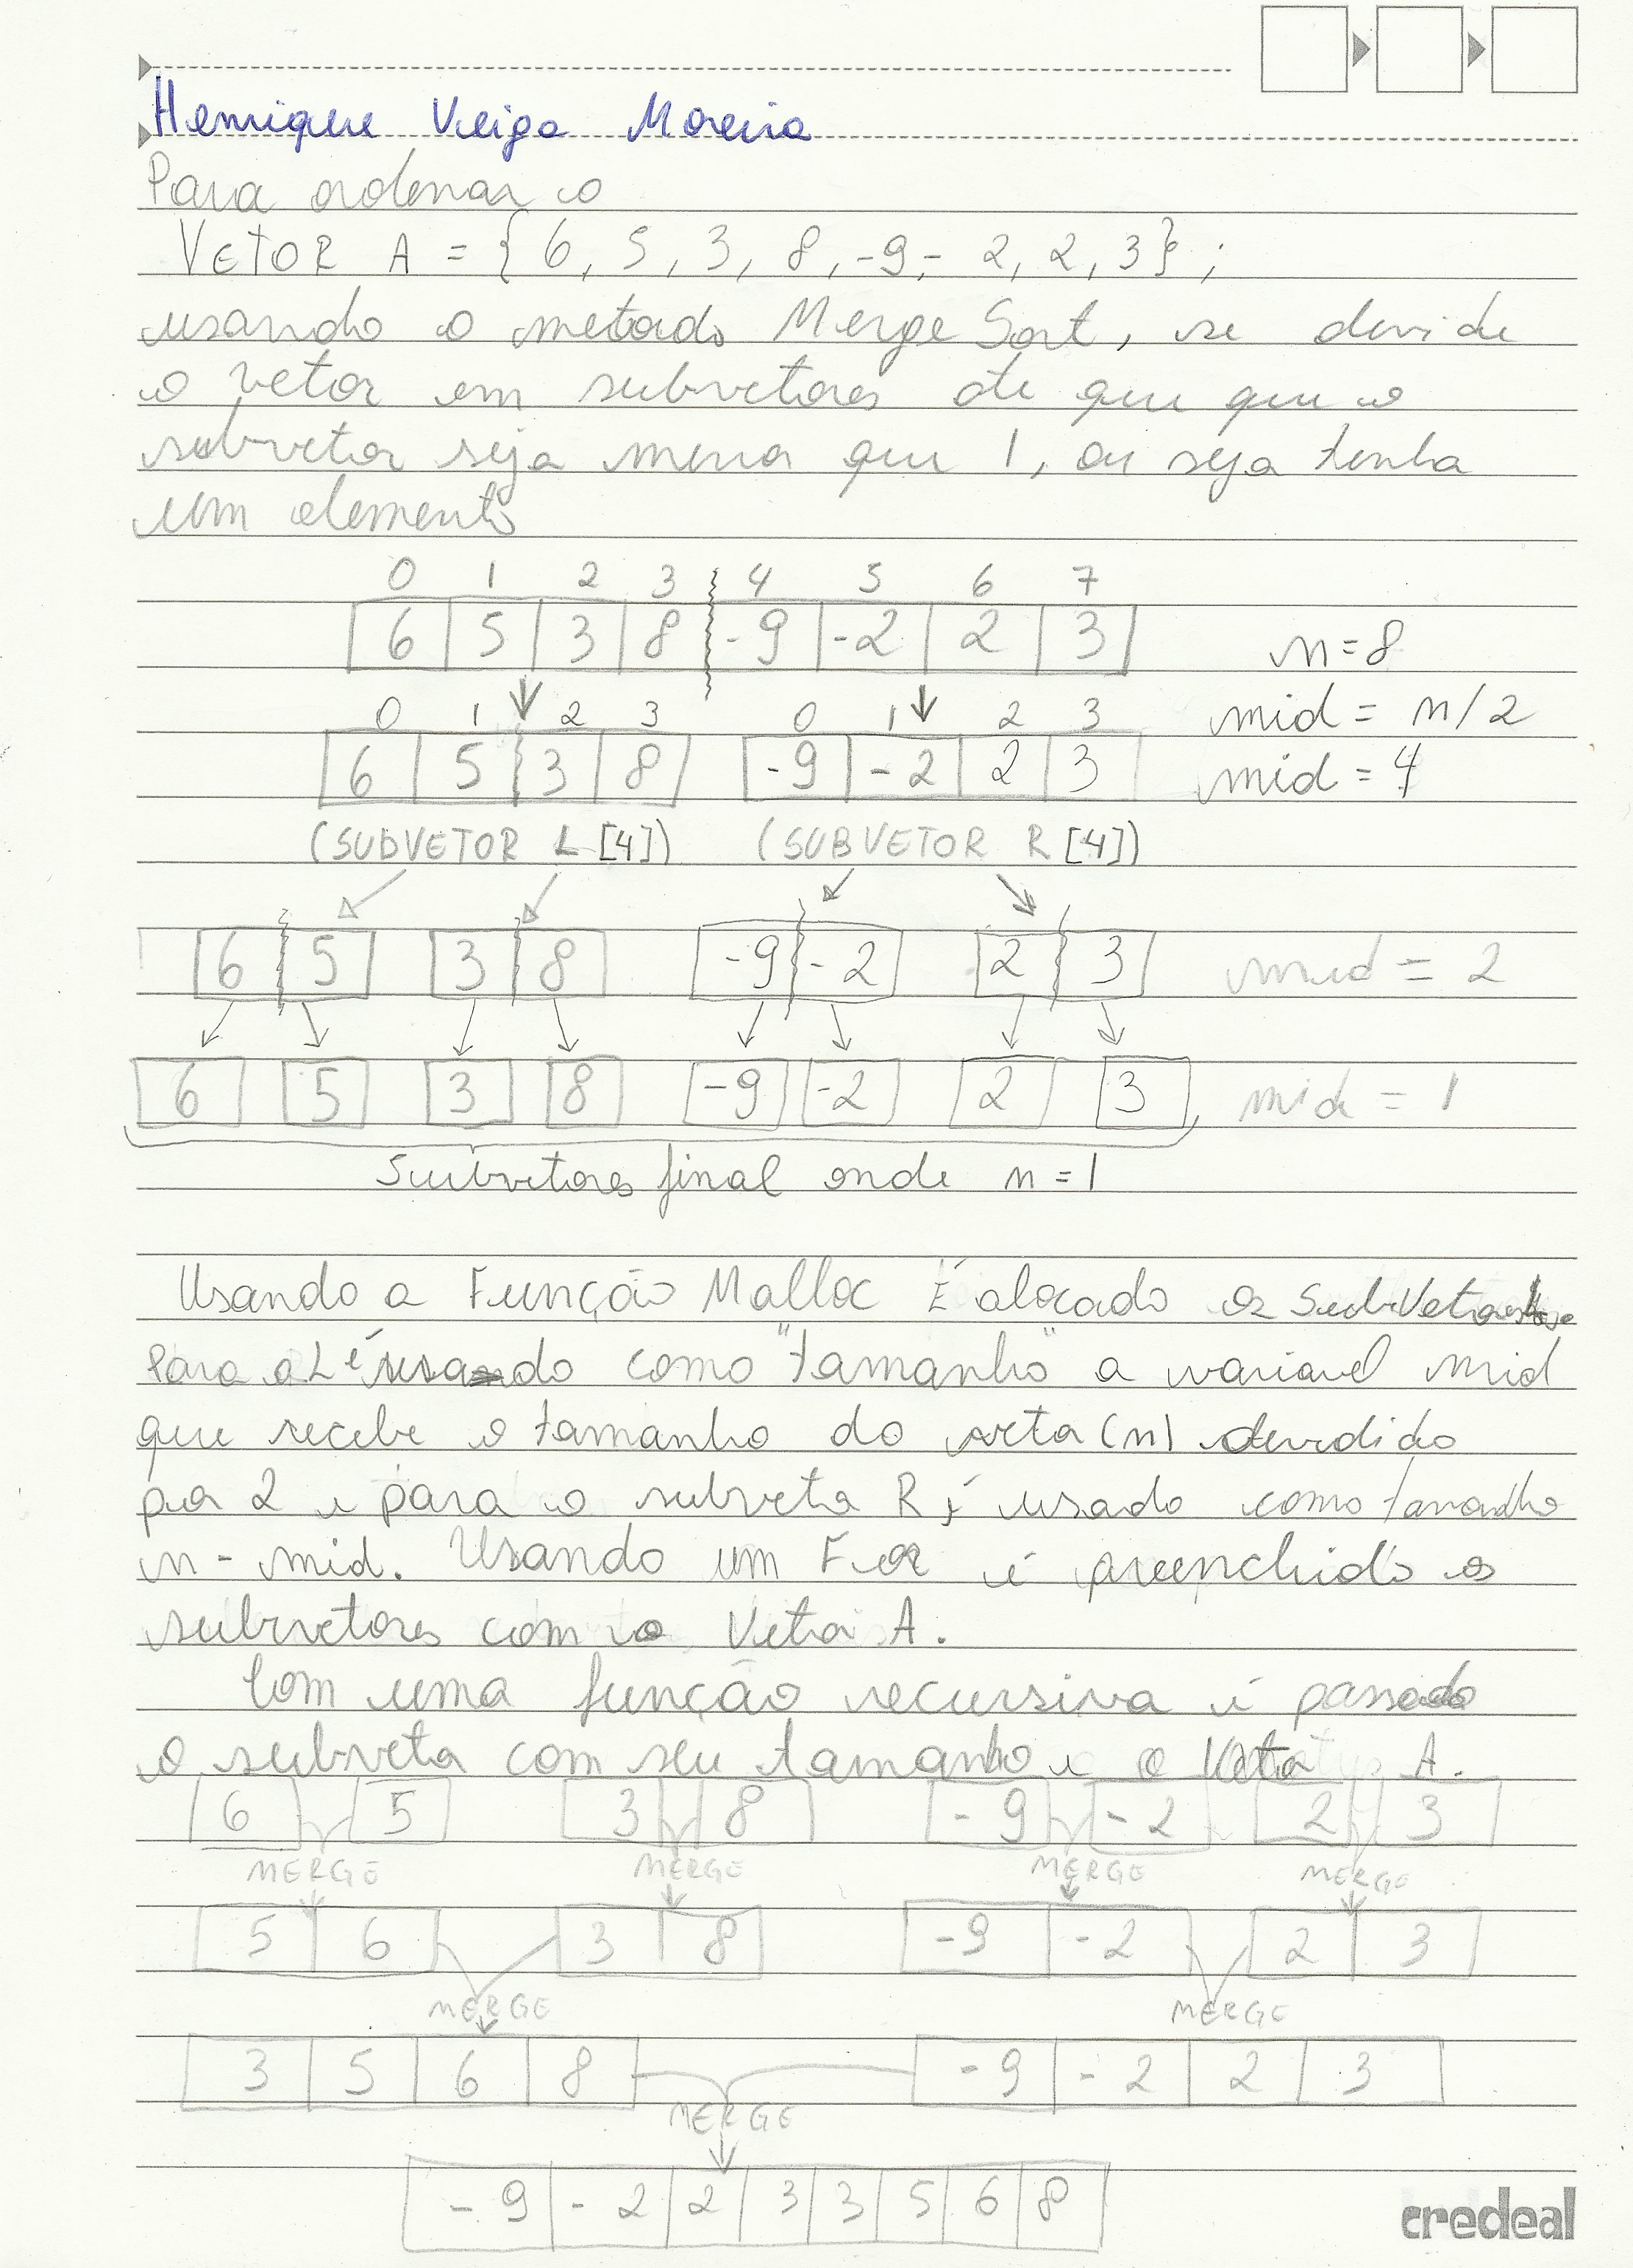 Henrique Veiga Moreira
Para ordenar o
VETOR A = {6, 5, 3, 8, -9, - 2, 2, 3};
usando o metodo Merge Sort, se devide
o vetor em subvetores ate que que o
subvetor seja menor que 1, ou seja tenha
um elemento
0 1 2 3 4 5 6 7
6 5 3 8 -9 -2 2 3 n=8
0 1 2 3 0 1 2 3 mid = n/2
6 5 3 8 -9 -2 2 3 mid = 4
(SUBVETOR L [4]) (SUBVETOR R [4])
6 5 3 8 -9 -2 2 3 mid = 2
6 5 3 8 -9 -2 2 3 mid = 1
Subvetores final onde n=1
Usando a Função Malloc É alocado os SubVetores
para o L é usado como "tamanho" a variavel mid
que recebe o tamanho do vetor (n) devidido
por 2 e para o subvetor R é usado como tamanho
n - mid. Usando um For é preenchido os
subvetores com o Vetor A.
Com uma função recursiva é passado
o subvetor com seu tamanho e o Vetor A.
6 5 3 8 -9 -2 2 3
MERGE MERGE MERGE MERGE
5 6 3 8 -9 -2 2 3
MERGE MERGE
3 5 6 8 -9 -2 2 3
MERGE
-9 -2 2 3 3 5 6 8
credeal